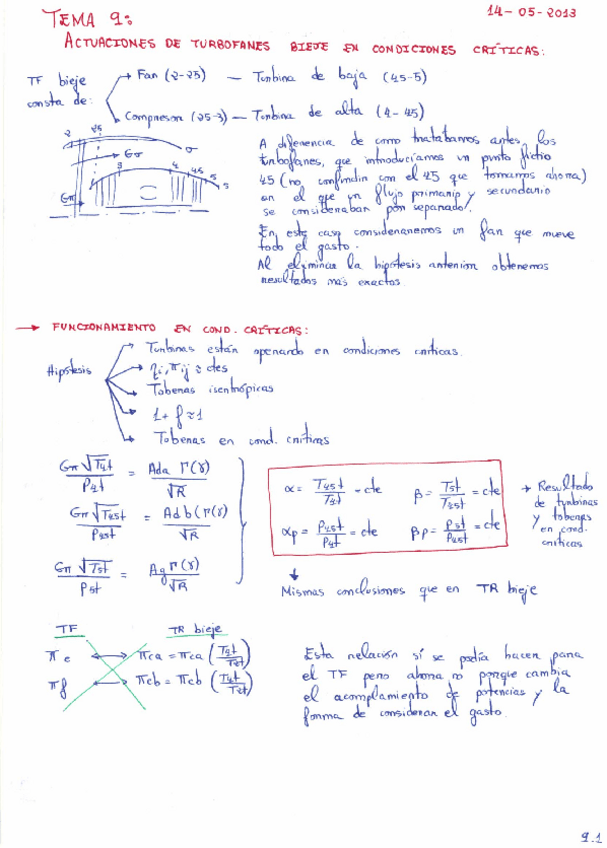 14-05-2013
TEMA 9:
ACTUACIONES DE TURBOFANES BIEJE EN CONDICIONES CRÍTICAS:
TF bieje consta de:
Fan (2-25) — Turbina de baja (45-5)
Compresor (25-3) — Turbina de alta (4-45)
2 25 Gσ σ 3 4 45 5 5 Gπ
A diferencia de como tratabamos antes los
turbofanes, que introducíamos un punto ficticio
45 (no confundir con el 45 que tomamos ahora)
en el que un flujo primario y secundario
se consideraban por separado.
En este caso consideraremos un fan que mueve
todo el gasto.
Al eliminar la hipótesis anterior obtenemos
resultados más exactos.
→ FUNCIONAMIENTO EN COND. CRÍTICAS:
Hipótesis
Turbinas están operando en condiciones críticas.
ηi, πij ≈ ctes
Toberas isentrópicas
1 + f ≈ 1
Toberas en cond. críticas
Gπ √T4t / P4t = Ada Γ(γ) / √R
Gπ √T45t / P45t = Adb Γ(γ) / √R
Gπ √T5t / P5t = Ag Γ(γ) / √R
α = T45t / T4t = cte β = T5t / T45t = cte
αp = P45t / P4t = cte βp = P5t / P45t = cte
→ Resultado
de turbinas
y toberas
en cond.
críticas
↓
Mismas conclusiones que en TR bieje
TF TR bieje
πc ↔ πca = πca (T4t / T2t)
πf ↔ πcb = πcb (T4t / T2t)
Esta relación sí se podía hacer para
el TF pero ahora no porque cambia
el acomplamiento de potencias y la
forma de considerar el gasto.
9.1